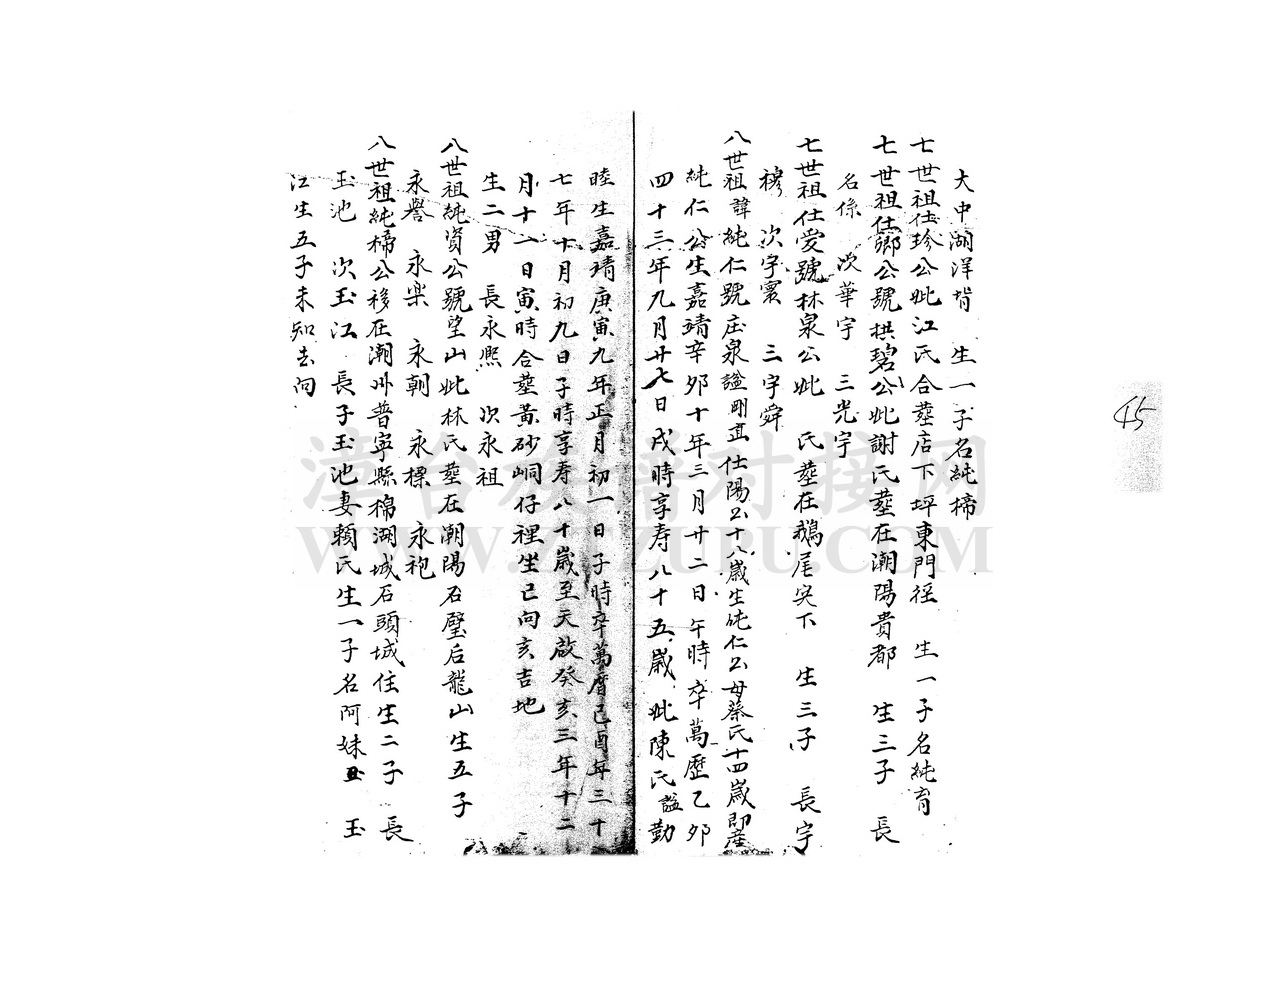 大中湖洋背　生一子名純褅
七世祖仕珍公妣江氏合塟店下坪東門徑　生一子名純育
七世祖仕鄉公號拱碧公妣謝氏塟在潮陽貴都　生三子　長
名係　次華宇　三光宇
七世祖仕愛號林泉公妣　氏塟在鵝尾尖下　生三子　長宇
穆　次宇寰　三宇舜
八世祖諱純仁號庄泉諡剛直仕陽公十八歲生純仁公母蔡氏十四歲即產
純仁公生嘉靖辛夘十年三月廿二日午時卒萬歷乙夘
四十三年九月廿七日戌時享寿八十五歲妣陳氏諡勤
睦生嘉靖庚寅九年正月初一日子時卒萬曆己酉年三十
七年十月初九日子時享寿八十歲至天啟癸亥三年十二
月十一日寅時合塟黃砂峒仔裡坐巳向亥吉地
生二男　長永熈　次永祖
八世祖純資公號望山妣林氏塟在潮陽石壁后龍山生五子
永譽　永樂　永朝　永標　永袍
八世祖純褅公移在潮州普寧縣棉湖城石頭城住生二子　長
玉池　次玉江　長子玉池妻賴氏生一子名阿妹　玉
江生五子未知去向
45
漳台族譜对接网
WWW.ZTZUPU.COM